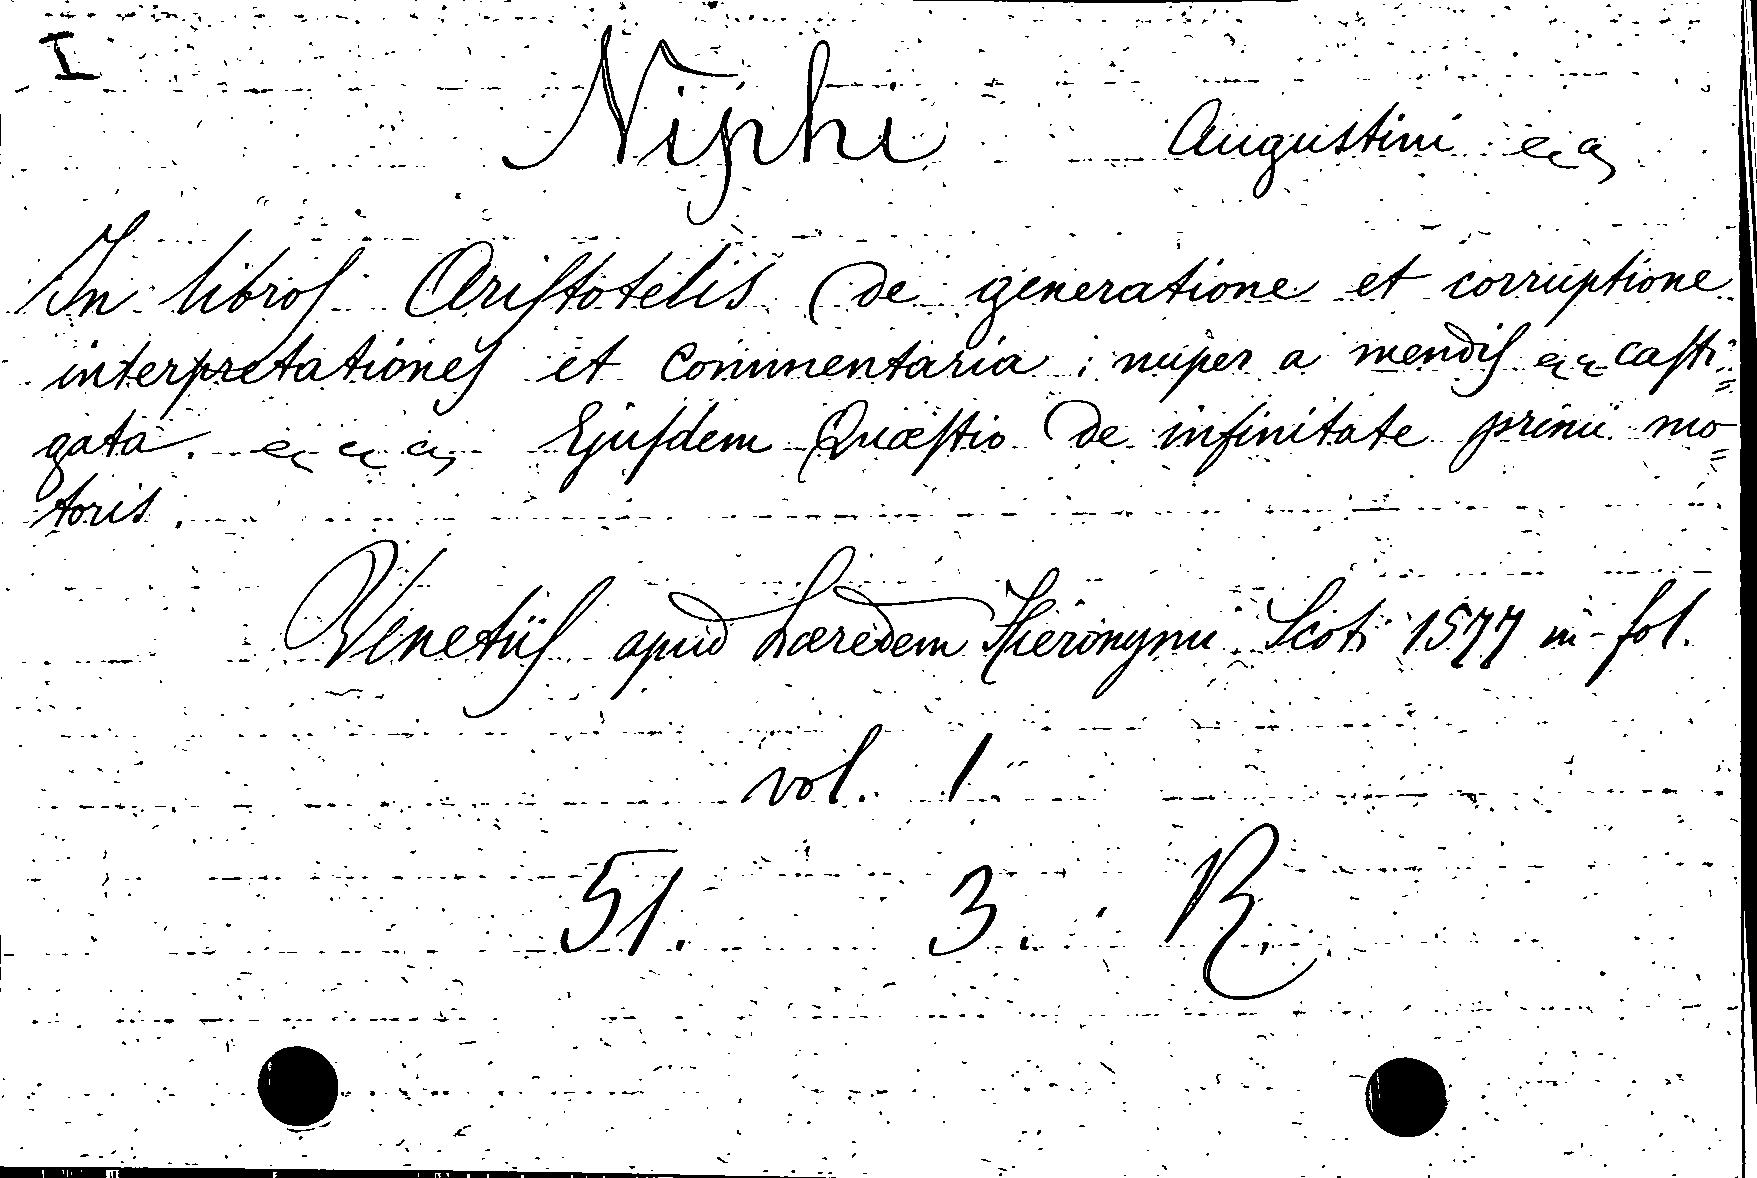 I
Niphi Augustini
In libros Aristotelis de generatione et corruptione
interpretationes et Commentaria; nuper a mendis casti=
gata. Ejusdem Quæstio de infinitate primi mo=
toris.
Venetiis apud hæredem Hieronymi Scoti 1577 in-fol.
vol. 1
51. 3. R.